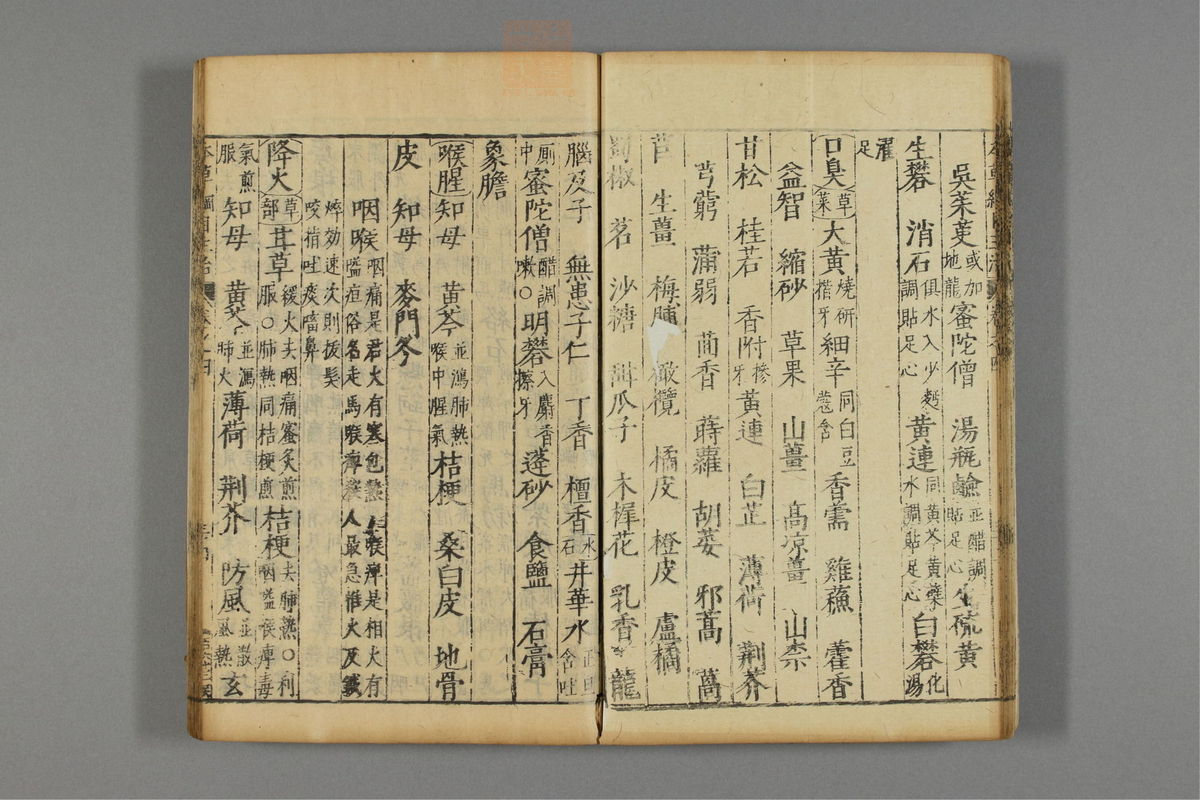 吳茱萸或加地龍蜜陀僧 湯瓶鹼並醋調貼足心生硫黃
生礬 消石俱水入少麪調貼足心黃連同黃芩黃蘗水調貼足心白礬化湯
濯足
口臭草菜大黃燒研揩牙細辛同白豆蔻含香薷 雞蘇 藿香
益智 縮砂 草果 山薑 高凉薑 山柰
甘松 桂若 香附摻牙黃連 白芷 薄荷 荆芥
芎藭 蒲蒻 茴香 蒔蘿 胡荽 邪蒿 萵
苣 生薑 梅脯 橄欖 橘皮 橙皮 盧橘
蜀椒 茗 沙糖 甜瓜子 木樨花 乳香 龍
腦及子 無患子仁 丁香 檀香水石井華水正旦含吐
厠中蜜陀僧醋調嗽○明礬入麝香擦牙蓬砂 食鹽 石膏
象膽
喉腥知母 黃芩並瀉肺熱喉中腥氣桔梗 桑白皮 地骨
皮 知母 麥門冬
咽喉咽痛是君火有寒包熱喉痹是相火有嗌疸俗名走馬喉痹殺人最急惟火及鍼
焠効速次則拔髮咬指吐痰㗜鼻
降火草部甘草緩火去咽痛蜜炙煎服○肺熱同桔梗煎桔梗去肺熱○利咽嗌喉痹毒
氣煎服知母 黃芩並瀉肺火薄荷 荆芥 防風並散風熱玄